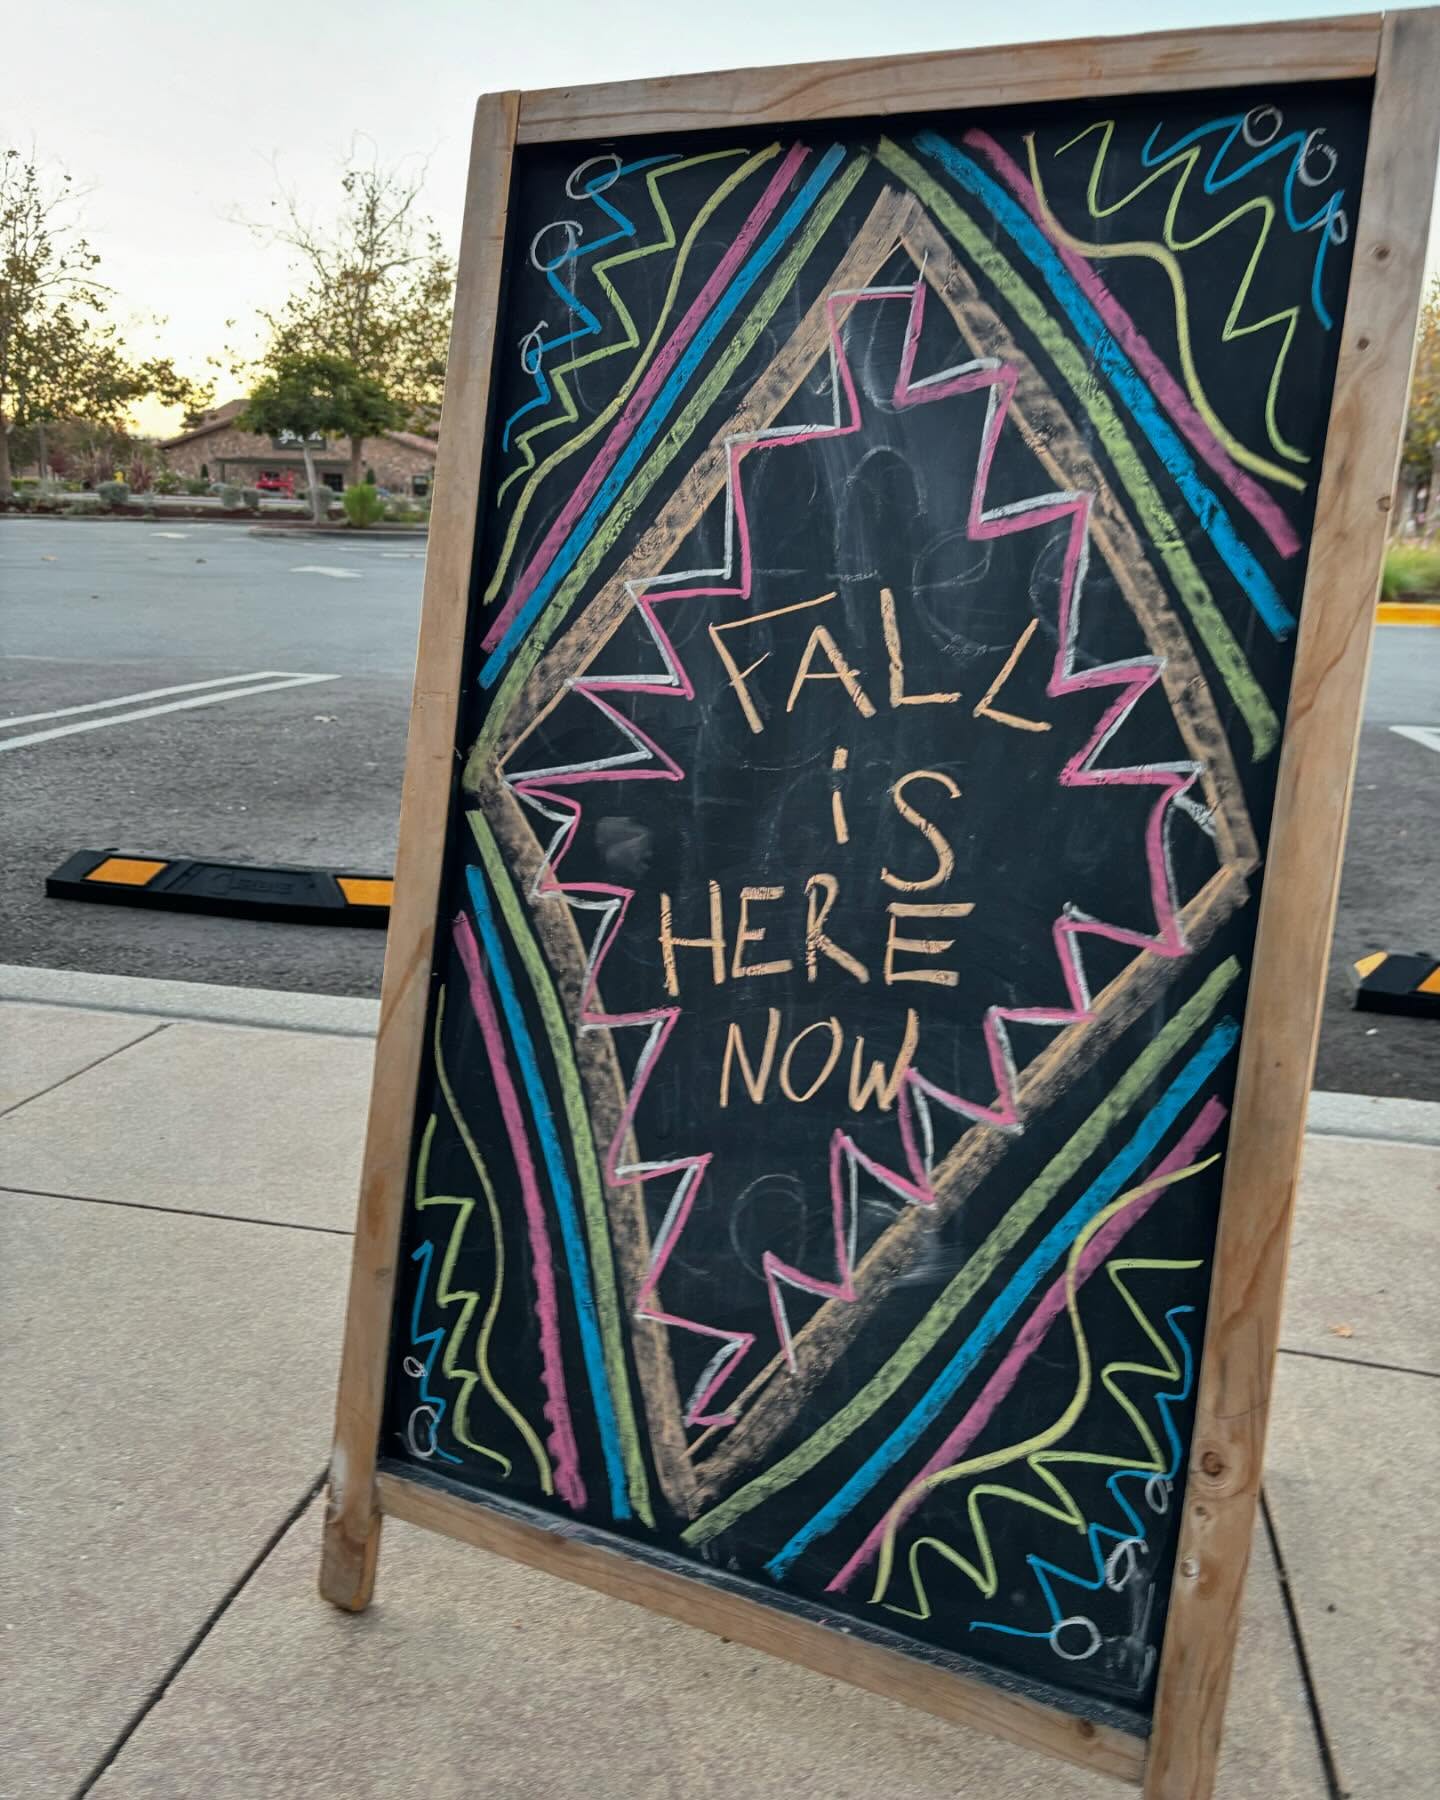 FALL
iS
HERE
NOW